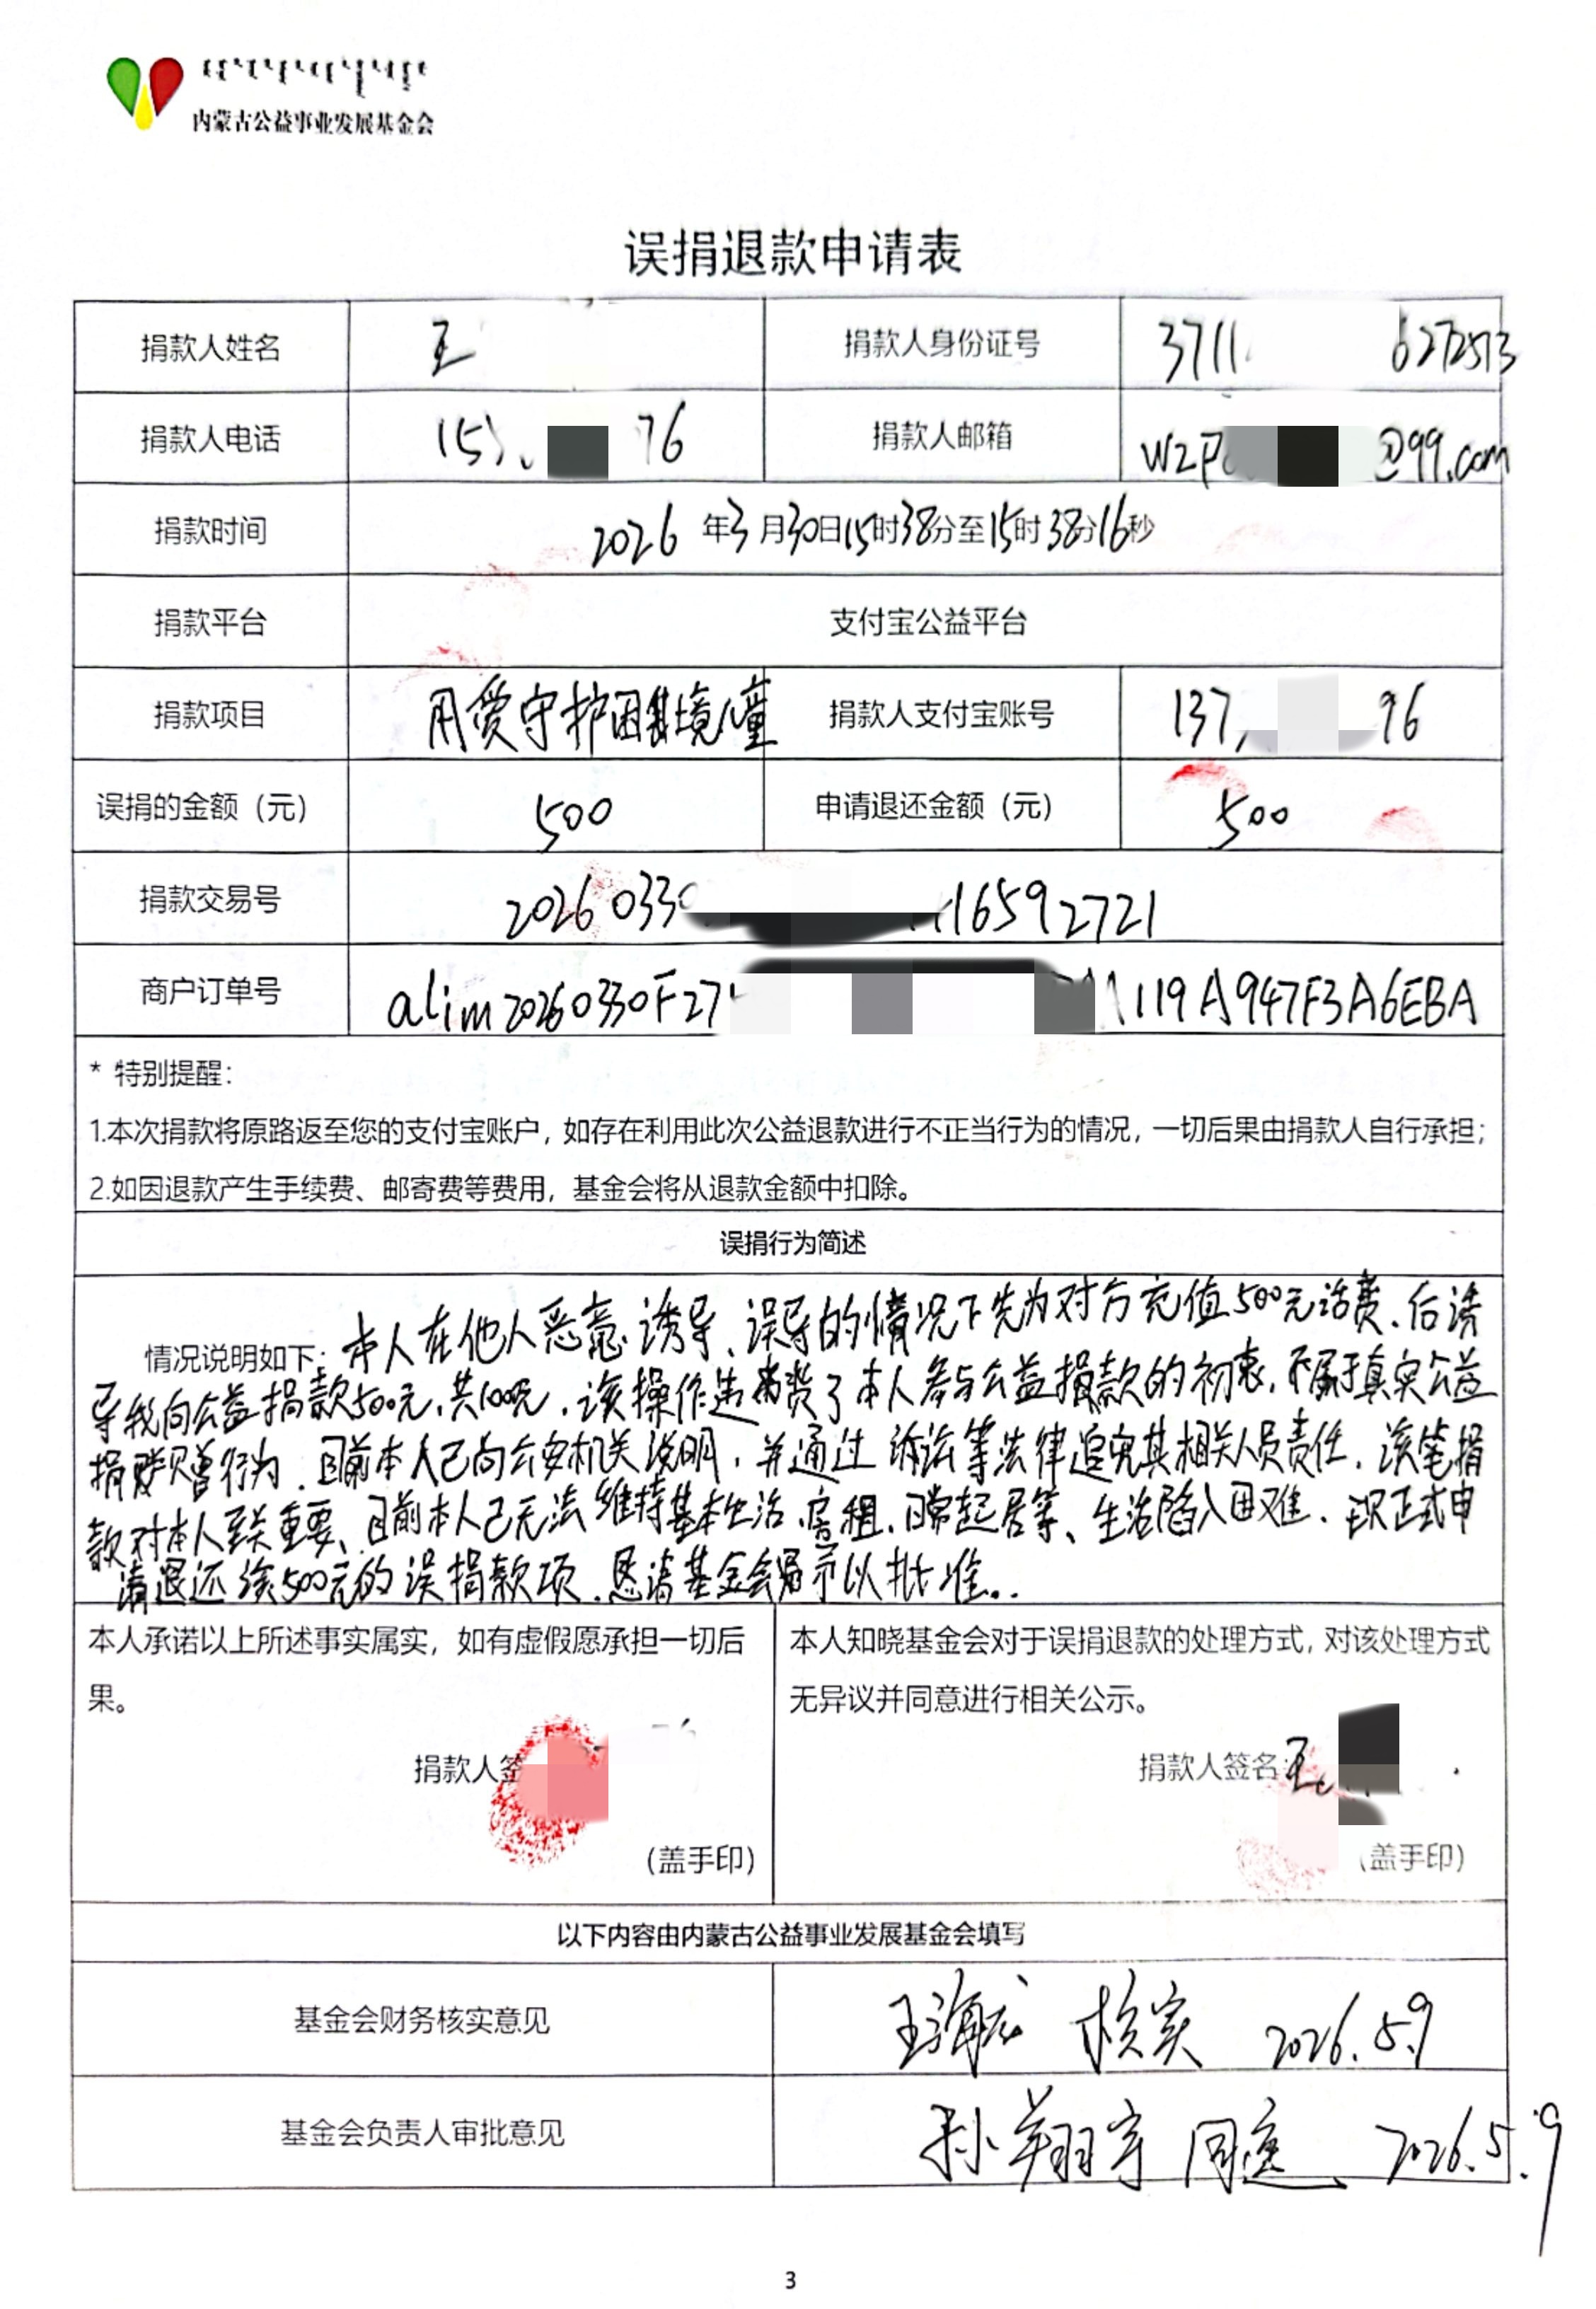 内蒙古公益事业发展基金会
误捐退款申请表
捐款人姓名 王 捐款人身份证号 3711 6272513
捐款人电话 153 76 捐款人邮箱 wzp @qq.com
捐款时间 2026年3月30日15时38分至15时38分16秒
捐款平台 支付宝公益平台
捐款项目 用爱守护困境儿童 捐款人支付宝账号 137 96
误捐的金额（元） 500 申请退还金额（元） 500
捐款交易号 20260330 16592721
商户订单号 alim20260330F27 119A947F3A6EBA
* 特别提醒：
1.本次捐款将原路返至您的支付宝账户，如存在利用此次公益退款进行不正当行为的情况，一切后果由捐款人自行承担；
2.如因退款产生手续费、邮寄费等费用，基金会将从退款金额中扣除。
误捐行为简述
情况说明如下：本人在他人恶意诱导、误导的情况下先为对方充值500元话费、后诱
导我向公益捐款500元，共1000元，该操作违 了本人参与公益捐款的初衷，不属于真实公益
捐赠行为．目前本人已向公安机关说明，并通过诉讼等法律追究其相关人员责任．该笔捐
款对本人至关重要、目前本人已无法维持基本生活、房租、日常起居等、生活陷入困难．现正式申
请退还该500元的误捐款项．恳请基金会予以批准。
本人承诺以上所述事实属实，如有虚假愿承担一切后
果。
捐款人签
（盖手印）
本人知晓基金会对于误捐退款的处理方式，对该处理方式
无异议并同意进行相关公示。
捐款人签名：王
（盖手印）
以下内容由内蒙古公益事业发展基金会填写
基金会财务核实意见 王海龙 核实 2026.5.9
基金会负责人审批意见 孙翔宇 同意 2026.5.9
3